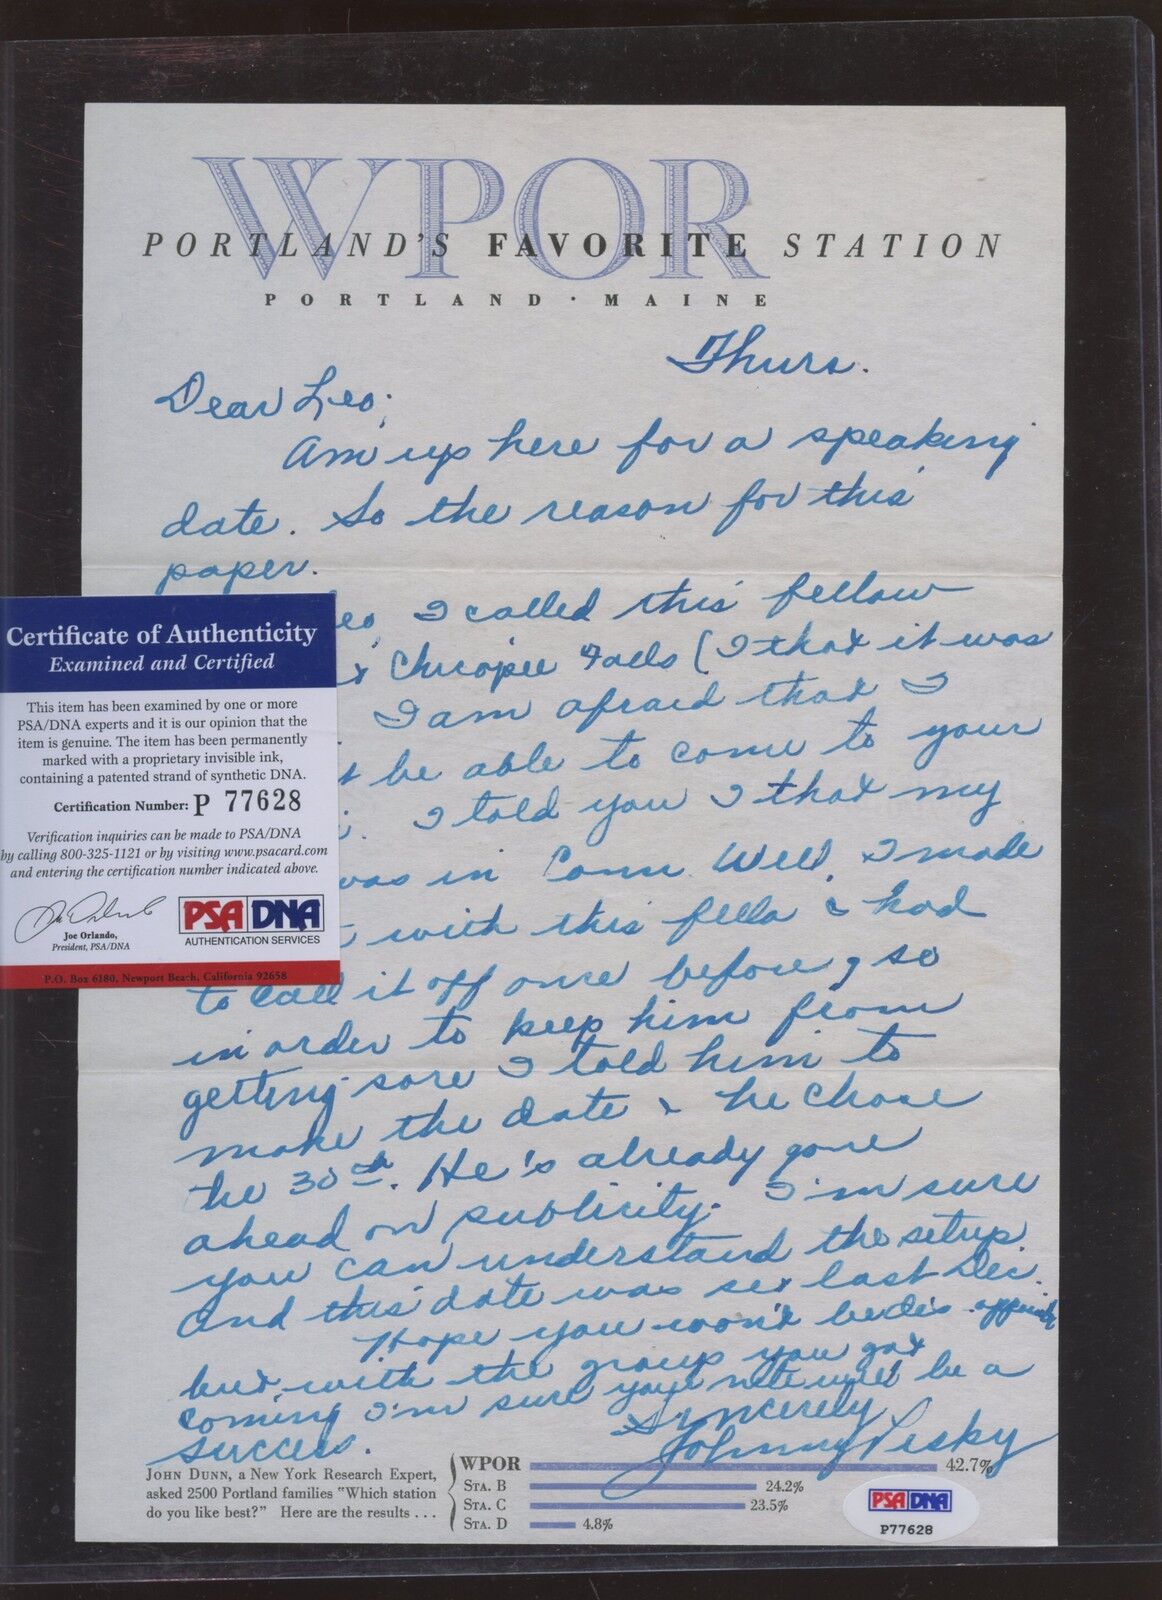 WPOR
PORTLAND'S FAVORITE STATION
PORTLAND · MAINE
Thurs.
Dear Leo,
Am up here for a speaking
date. So the reason for this
paper.
eo, I called this fellow
Chicopee Falls (I that it was
I am afraid that I
be able to come to your
I told you I that my
was in Conn. Well, I made
with this fella & had
to call it off once before, so
in order to keep him from
getting sore I told him to
make the date & he chose
the 30th. He's already gone
ahead on publicity. I'm sure
you can understand the setup.
And this date was set last Dec.
Hope you won't be
but with the group you got
coming I'm sure your nite will be a
success.
Sincerely
Johnny Pesky
Certificate of Authenticity
Examined and Certified
This item has been examined by one or more
PSA/DNA experts and it is our opinion that the
item is genuine. The item has been permanently
marked with a proprietary invisible ink,
containing a patented strand of synthetic DNA.
Certification Number: P 77628
Verification inquiries can be made to PSA/DNA
by calling 800-325-1121 or by visiting www.psacard.com
and entering the certification number indicated above.
Joe Orlando,
President, PSA/DNA
PSA DNA
AUTHENTICATION SERVICES
P.O. Box 6180, Newport Beach, California 92658
JOHN DUNN, a New York Research Expert,
asked 2500 Portland families "Which station
do you like best?" Here are the results . . .
WPOR 42.7%
STA. B 24.2%
STA. C 23.5%
STA. D 4.8%
PSA DNA
P77628